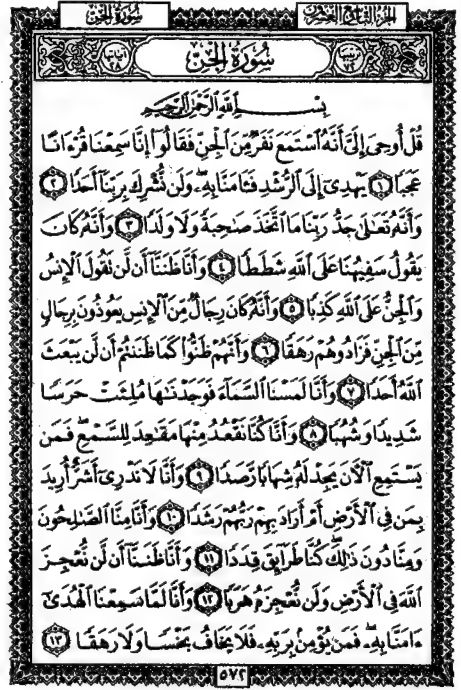 سُورَةُ الجِنّ
الجزء التاسع والعشرون
سُورَةُ الجِنّ
بِسْمِ اللَّهِ الرَّحْمَٰنِ الرَّحِيمِ
قُلْ أُوحِيَ إِلَيَّ أَنَّهُ ٱسْتَمَعَ نَفَرٌ مِّنَ ٱلْجِنِّ فَقَالُوٓا۟ إِنَّا سَمِعْنَا قُرْءَانًا
عَجَبًا ﴿١﴾ يَهْدِىٓ إِلَى ٱلرُّشْدِ فَـَٔامَنَّا بِهِۦ ۖ وَلَن نُّشْرِكَ بِرَبِّنَآ أَحَدًا ﴿٢﴾
وَأَنَّهُۥ تَعَٰلَىٰ جَدُّ رَبِّنَا مَا ٱتَّخَذَ صَٰحِبَةً وَلَا وَلَدًا ﴿٣﴾ وَأَنَّهُۥ كَانَ
يَقُولُ سَفِيهُنَا عَلَى ٱللَّهِ شَطَطًا ﴿٤﴾ وَأَنَّا ظَنَنَّآ أَن لَّن نَقُولَ ٱلْإِنسُ
وَٱلْجِنُّ عَلَى ٱللَّهِ كَذِبًا ﴿٥﴾ وَأَنَّهُۥ كَانَ رِجَالٌ مِّنَ ٱلْإِنسِ يَعُوذُونَ بِرِجَالٍ
مِّنَ ٱلْجِنِّ فَزَادُوهُمْ رَهَقًا ﴿٦﴾ وَأَنَّهُمْ ظَنُّوا۟ كَمَا ظَنَنتُمْ أَن لَّن يَبْعَثَ
ٱللَّهُ أَحَدًا ﴿٧﴾ وَأَنَّا لَمَسْنَا ٱلسَّمَآءَ فَوَجَدْنَٰهَا مُلِئَتْ حَرَسًا
شَدِيدًا وَشُهُبًا ﴿٨﴾ وَأَنَّا كُنَّا نَقْعُدُ مِنْهَا مَقَٰعِدَ لِلسَّمْعِ ۖ فَمَن
يَسْتَمِعِ ٱلْـَٔانَ يَجِدْ لَهُۥ شِهَابًا رَّصَدًا ﴿٩﴾ وَأَنَّا لَا نَدْرِىٓ أَشَرٌّ أُرِيدَ
بِمَن فِى ٱلْأَرْضِ أَمْ أَرَادَ بِهِمْ رَبُّهُمْ رَشَدًا ﴿١٠﴾ وَأَنَّا مِنَّا ٱلصَّٰلِحُونَ
وَمِنَّا دُونَ ذَٰلِكَ ۖ كُنَّا طَرَآئِقَ قِدَدًا ﴿١١﴾ وَأَنَّا ظَنَنَّآ أَن لَّن نُّعْجِزَ
ٱللَّهَ فِى ٱلْأَرْضِ وَلَن نُّعْجِزَهُۥ هَرَبًا ﴿١٢﴾ وَأَنَّا لَمَّا سَمِعْنَا ٱلْهُدَىٰٓ
ءَامَنَّا بِهِۦ ۖ فَمَن يُؤْمِنۢ بِرَبِّهِۦ فَلَا يَخَافُ بَخْسًا وَلَا رَهَقًا ﴿١٣﴾
٥٧٢